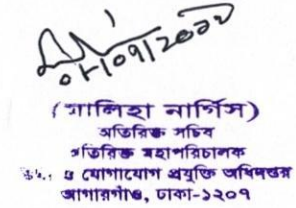 ০৮/০৭/২০১৮
(গালিহা নার্গিস)
অতিরিক্ত সচিব
অতিরিক্ত মহাপরিচালক
ও যোগাযোগ প্রযুক্তি অধিদপ্তর
আগারগাঁও, ঢাকা-১২০৭